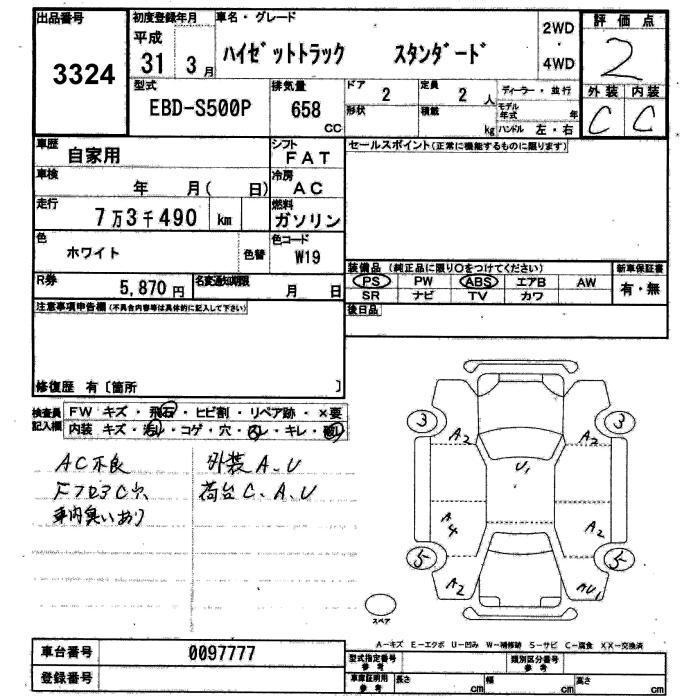 出品番号
3324
初度登録年月
平成
31 3月
車名・グレード
ハイゼットトラック スタンダード
2WD
・
4WD
評価点
2
外装 内装
C C
型式
EBD-S500P
排気量
658
CC
ドア
2
定員
2 人
形状
積載
kg
ディーラー・並行
モデル年式 年
ハンドル 左・右
車歴
自家用
シフト
FAT
車検
年 月( 日)
冷房
AC
走行
7万3千490 km
燃料
ガソリン
色
ホワイト
色替
色コード
W19
R券
5,870円
名変通知期限
月 日
セールスポイント(正常に機能するものに限ります)
装備品 (純正品に限り○をつけてください)
PS PW ABS エアB AW
SR ナビ TV カワ
新車保証書
有・無
後日品
注意事項申告欄(不具合内容等は具体的に記入して下さい)
修復歴 有〔箇所 〕
検査員記入欄
FW キズ・飛石・ヒビ割・リペア跡・×要
内装 キズ・汚レ・コゲ・穴・スレ・キレ・破レ
AC不良 外装A、U
FフロアC穴 荷台C、A、U
車内臭いあり
3 3
A2 A2
U1
A4 A2
5 5
A2 AU1
スペア
A−キズ E−エクボ U−凹み W−補修跡 S−サビ C−腐食 XX−交換済
車台番号
0097777
登録番号
型式指定番号
参考
類別区分番号
参考
車庫証明用
参考
長さ cm 幅 cm 高さ cm